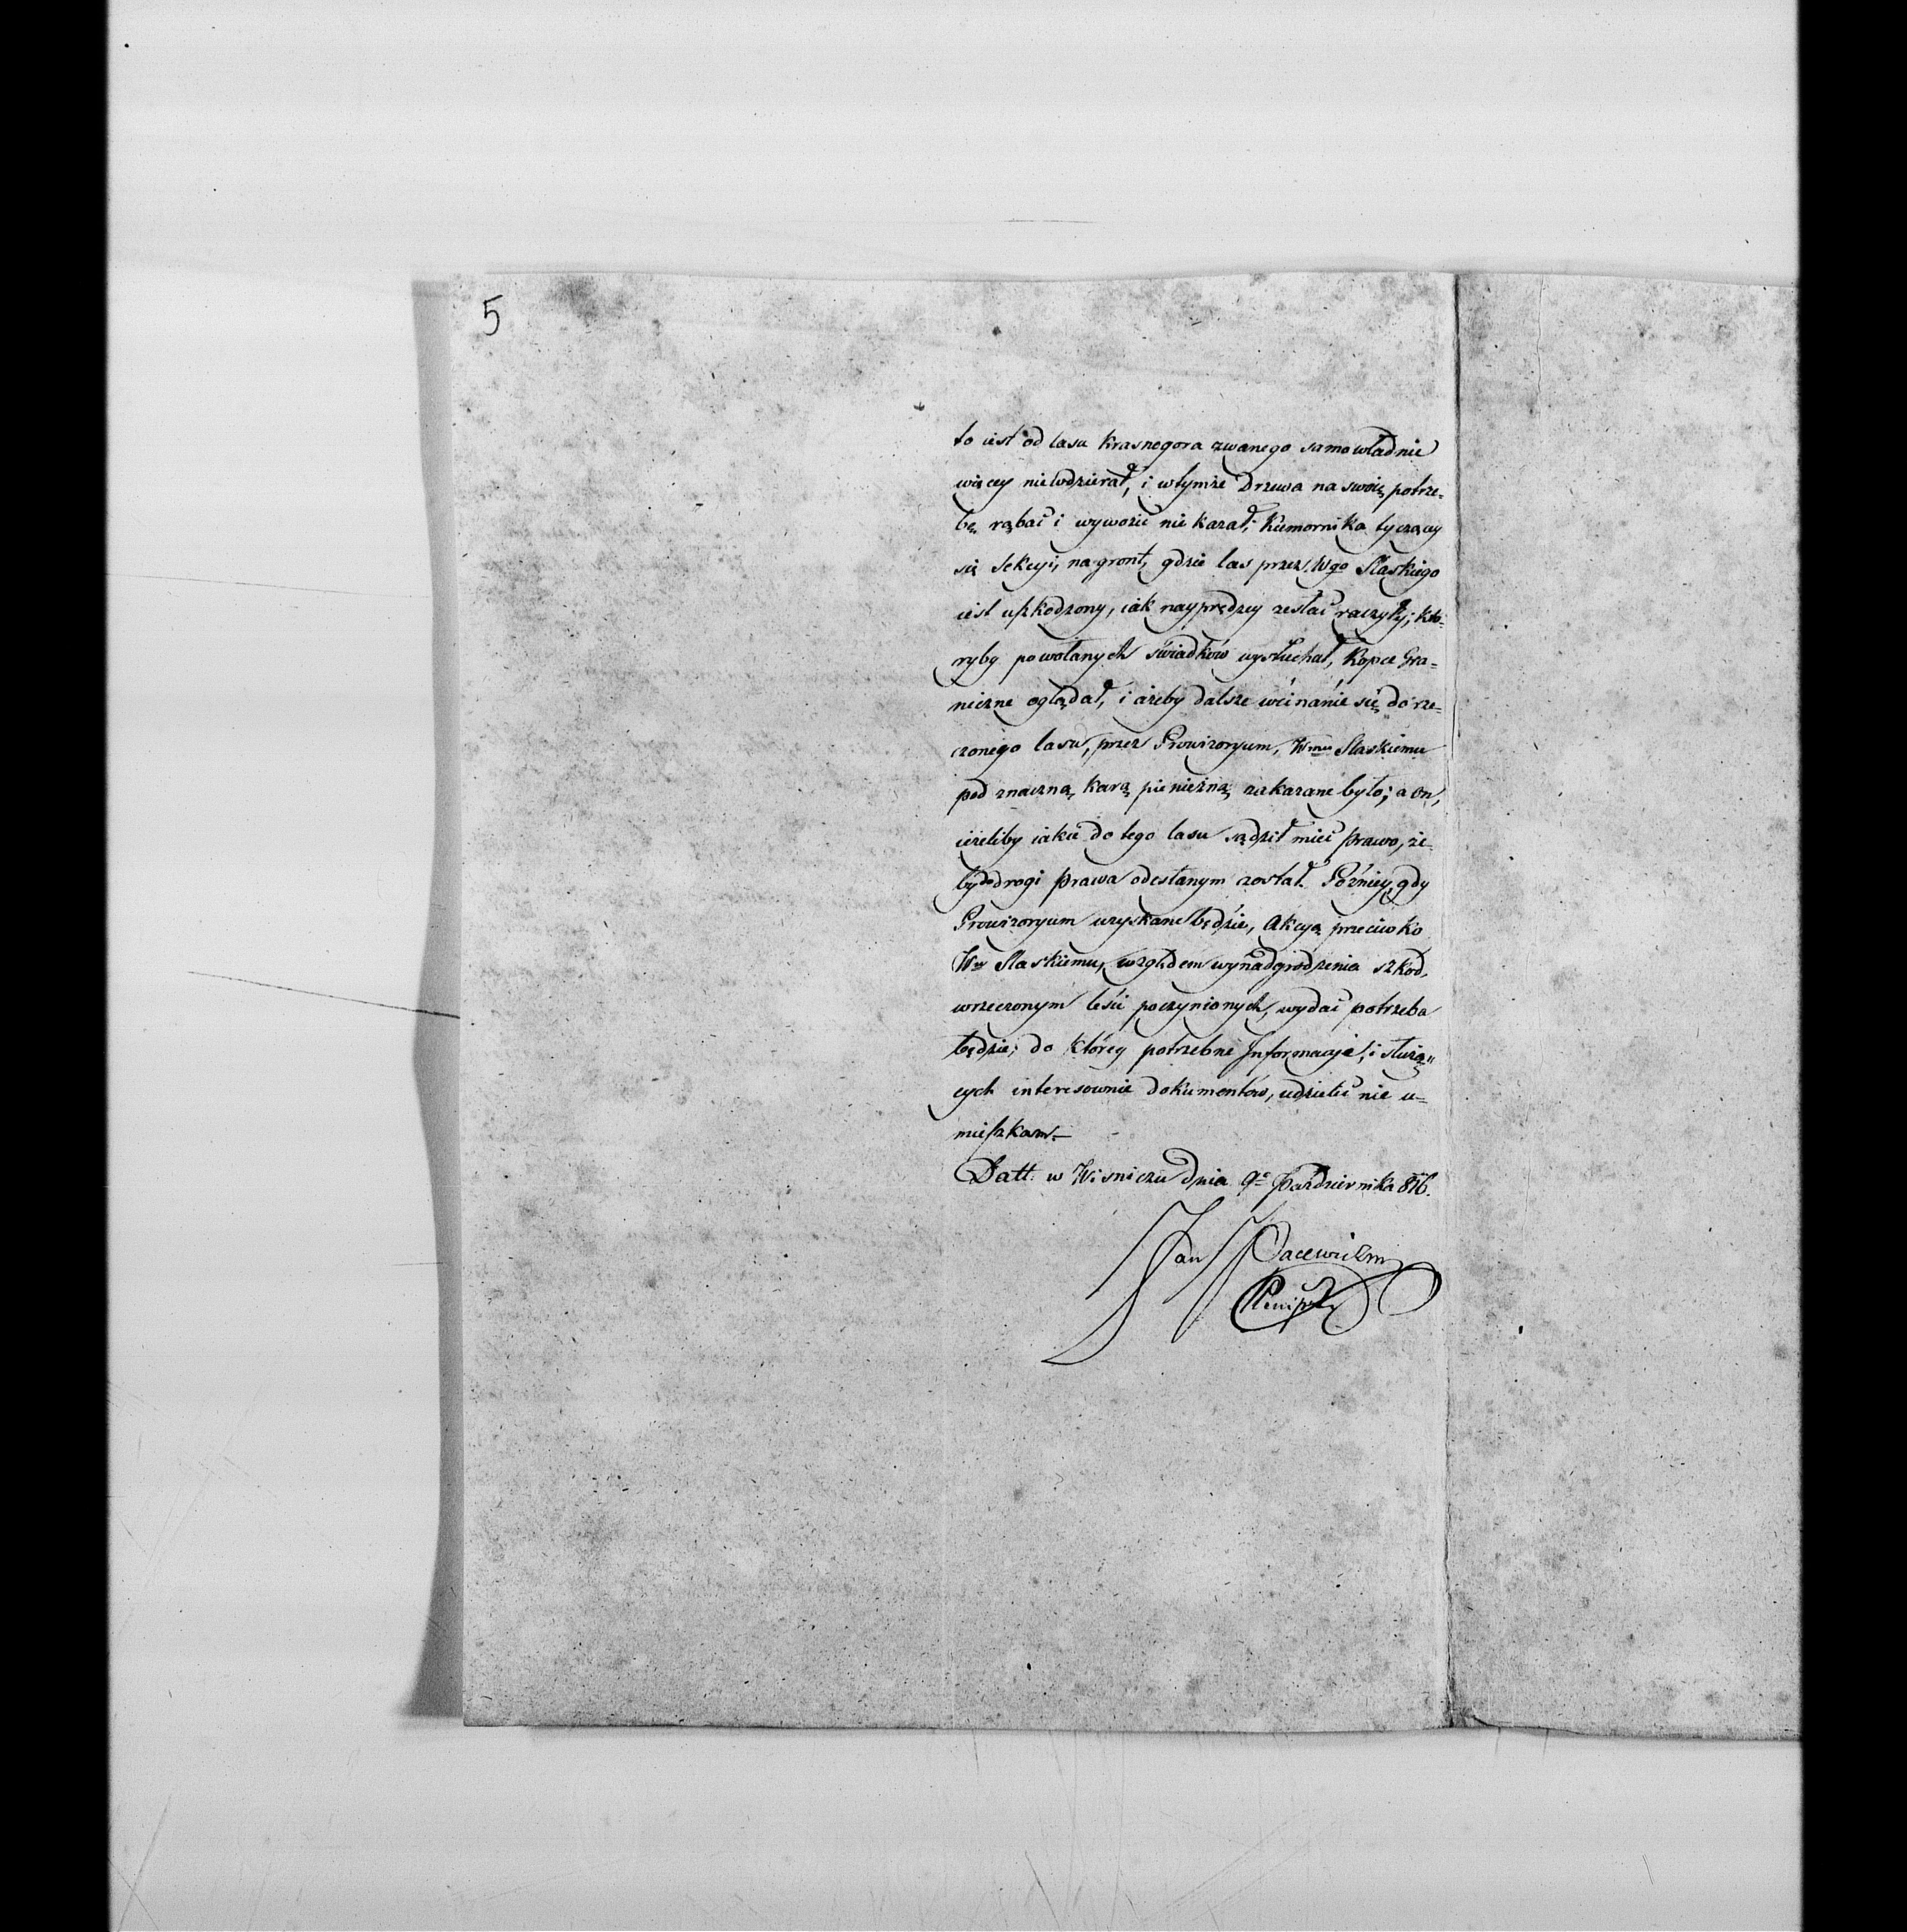 5
to iest od lasu Krasnogora zwanego samowładnie
więcey niewdzierał, i wtymże Drzewa na swoię potrze-
bę rąbać i wywozić nie kazał; Kiemornika tyczący
się Sekcyi, na gront, gdzie las przez Wgo Slaskiego
iest uszkodzony, iak nayprędzey zesłać raczyły; któ-
ryby powołanych świadków wysłuchał, Kopce Gra-
niczne oglądał, i ażeby dalsze wcinánie się do rze-
czonego lasu, przez Prowizoryum, Wmu Slaskiemu
pod znaczną karą pieniężną zakazane było; a on,
ieżeliby iakie do tego lasu sądził mieć prawo, że-
by do drogi prawa odesłanym został. Pózniey, gdy
Prowizoryum uzyskane będzie, Akcyą przeciwko
Wmu Slaskiemu, względem wynadgrodzenia szkod,
wrzeczonym lesie poczynionych, wydać potrzeba
będzie; do którey potrzebne Informacyje, i służą-
cych interesownie dokumentów, udzielić nie u-
mieszkam.—
Datt: w Wisniczu dnia 9º Października 816.
Jan